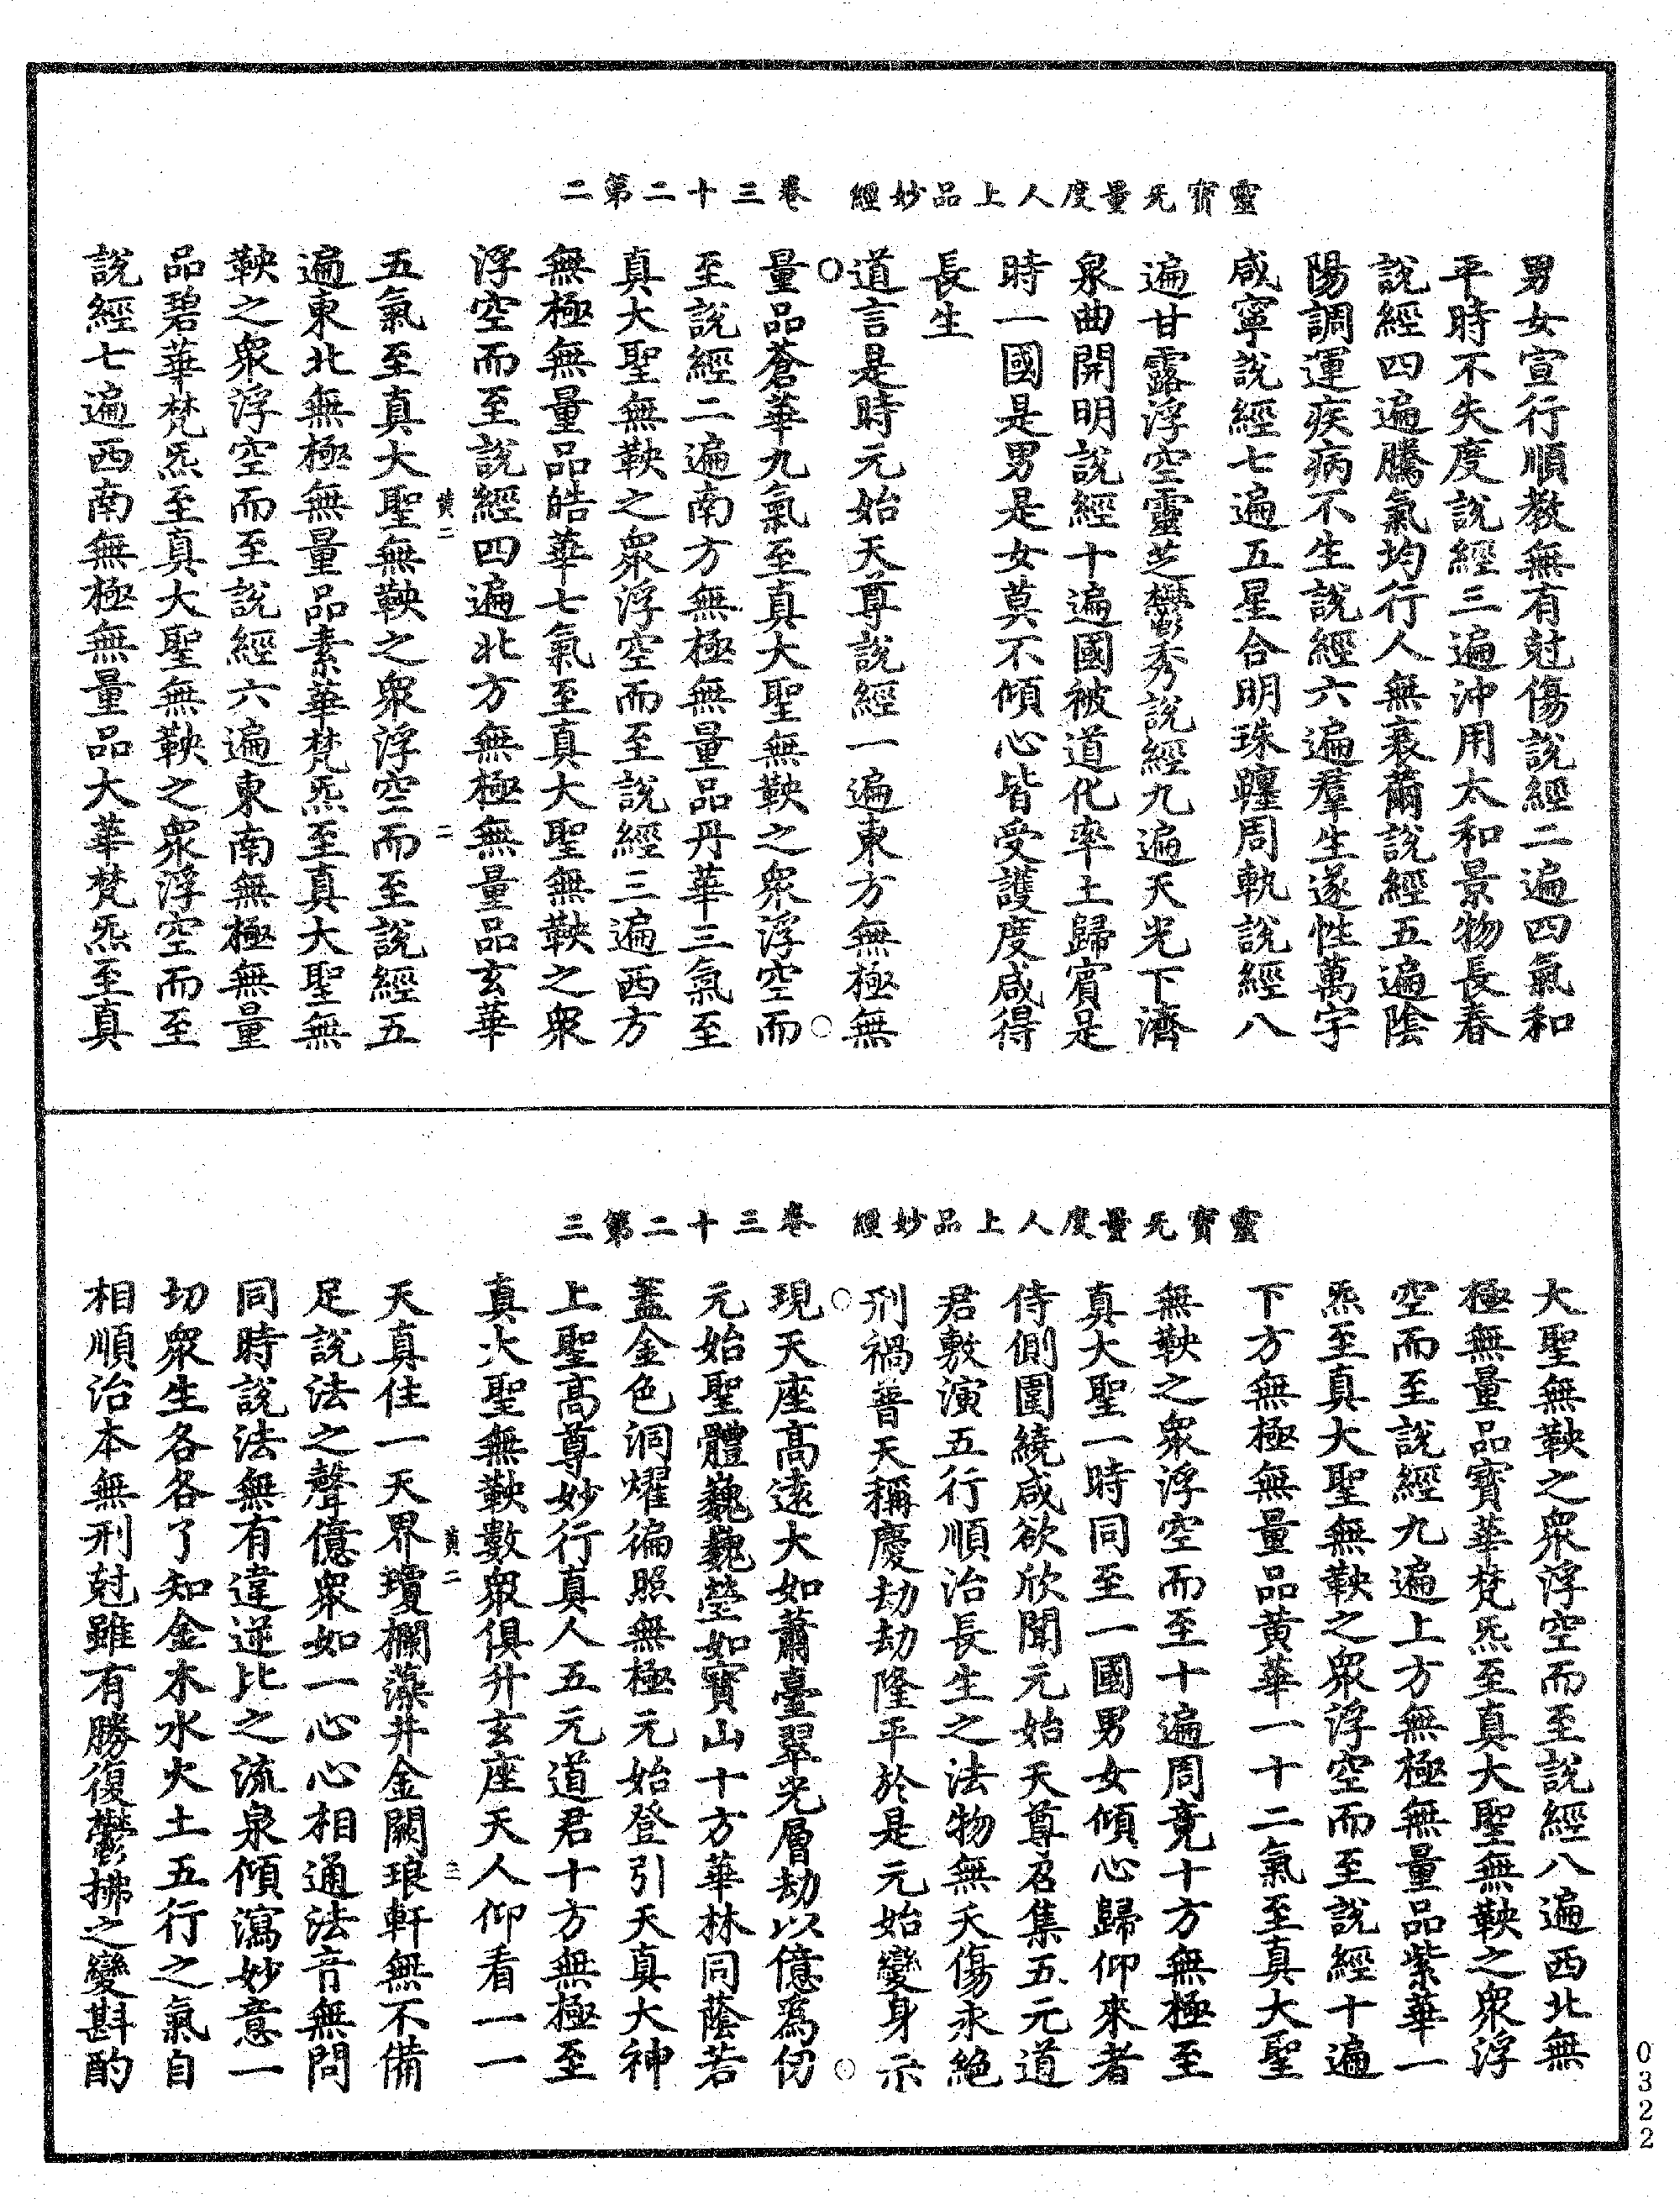 靈寶无量度人上品妙經　卷三十二第二
男女宣行順教無有尅傷說經二遍四氣和
平時不失度說經三遍沖用太和景物長春
說經四遍騰氣均行人無衰薾說經五遍陰
陽調運疾病不生說經六遍羣生遂性萬宇
咸寧說經七遍五星合明珠躔周軌說經八
遍甘露浮空靈芝鬱秀說經九遍天光下濟
泉曲開明說經十遍國被道化率土歸賓是
時一國是男是女莫不傾心皆受護度咸得
長生
道言是時元始天尊說經一遍東方無極無
量品蒼華九氣至真大聖無鞅之衆浮空而
至說經二遍南方無極無量品丹華三氣至
真大聖無鞅之衆浮空而至說經三遍西方
無極無量品皓華七氣至真大聖無鞅之衆
浮空而至說經四遍北方無極無量品玄華
黃二　二
五氣至真大聖無鞅之衆浮空而至說經五
遍東北無極無量品素華梵炁至真大聖無
鞅之衆浮空而至說經六遍東南無極無量
品碧華梵炁至真大聖無鞅之衆浮空而至
說經七遍西南無極無量品大華梵炁至真
靈寶无量度人上品妙經　卷三十二第三
大聖無鞅之衆浮空而至說經八遍西北無
極無量品寶華梵炁至真大聖無鞅之衆浮
空而至說經九遍上方無極無量品紫華一
炁至真大聖無鞅之衆浮空而至說經十遍
下方無極無量品黃華一十二氣至真大聖
無鞅之衆浮空而至十遍周竟十方無極至
真大聖一時同至一國男女傾心歸仰來者
侍側圍繞咸欲欣聞元始天尊召集五元道
君敷演五行順治長生之法物無夭傷永絕
刑禍普天稱慶劫劫隆平於是元始變身示
現天座高遠大如蕭臺翠光層劫以億為仞
元始聖體巍巍瑩如寶山十方華林同蔭若
蓋金色洞燿徧照無極元始登引天真大神
上聖高尊妙行真人五元道君十方無極至
真大聖無鞅數衆俱升玄座天人仰看一一
黃二　三
天真住一天界瓊欄藻井金闕琅軒無不備
足說法之聲億衆如一心心相通法音無問
同時說法無有違逆比之流泉傾瀉妙意一
切衆生各各了知金木水火土五行之氣自
相順治本無刑尅雖有勝復鬱拂之變斟酌
0322